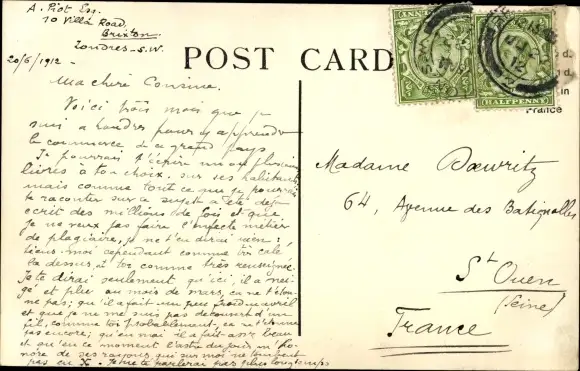 A. Piot Esq.
10 Villa Road
Brixton
Londres - S.W.
20/6/1912 -
POST CARD
Ma chère Cousine.
Voici trois mois que je
suis à Londres pour y apprendre
le commerce de ce grand pays
Je pourrais t'écrire un ou plusieurs
livres à ton choix, sur ses habitants
mais comme tout ce que je pourrais
te raconter sur ce sujet a été déjà
écrit des millions de fois et que
je ne veux pas faire l'infecte métier
de plagiaire, je ne t'en dirai rien;
tiens moi cependant comme très calé
là dessus, à toi comme très renseignée.
Je te dirai seulement qu'ici, il a nei-
gé et plu au mois de mars, ça ne t'éton-
ne pas; qu'il a fait un peu froid en avril
et que je ne me suis pas découvert d'un
fil, comme toi probablement, ça ne t'étonne
pas encore; qu'en mai il a fait assez beau
et qu'en ce moment l'astre du jour m'ho-
nore de ses rayons, qui sur moi ne tombent
pas en X. Je ne te parlerai pas plus longtemps
HALFPENNY
in
France
Madame
64, Avenue des Batignolles
St Ouen
(Seine)
France